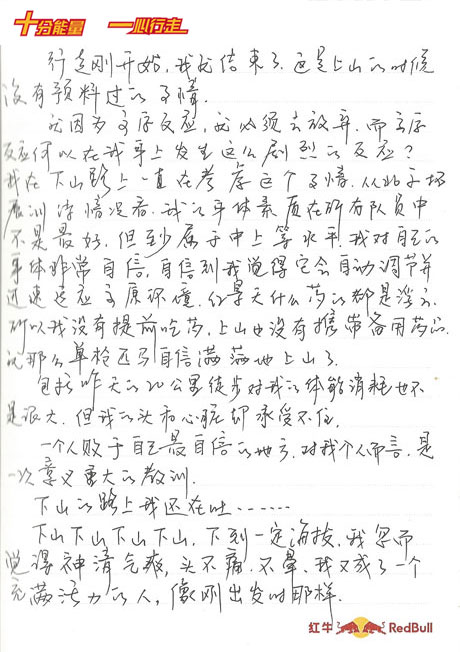 十分能量 一心行走
行走刚开始,我就结束了.这是上山的时候
没有预料过的事情.
就因为高原反应,我必须去放弃.而高原
反应何以在我身上发生这么剧烈的反应?
我在下山路上一直在考虑这个事情.从北京拓
展训练情况看.我的身体素质在所有队员中
不是最好.但至少属于中上等水平.我对自己的
身体非常自信,自信到我觉得它会自动调节并
迅速适应高原环境.红景天什么药的都是浮云.
所以我没有提前吃药,上山也没有携带备用药品.
就那么单枪匹马自信满满地上山了.
包括昨天的20公里徒步对我的体能消耗也不
是很大.但我的头和心脏却承受不住.
一个人败于自己最自信的地方.对我个人而言.是
一次意义重大的教训.
下山的路上我还在吐......
下山下山下山下山.下到一定海拔,我忽而
觉得神清气爽,头不痛.不晕.我又成了一个
充满活力的人,像刚出发时那样.
红牛 RedBull